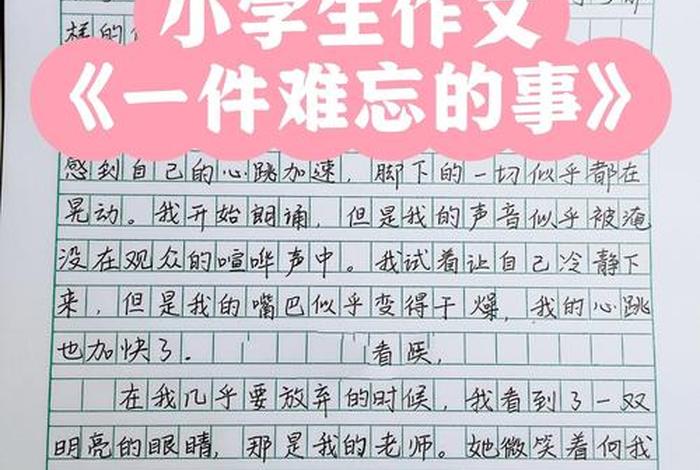 小学生作文
样的
《一件难忘的事》
感到自己的心跳加速，脚下的一切似乎都在
晃动。我开始朗诵，但是我的声音似乎被淹
没在观众的喧哗声中。我试着让自己冷静下
来，但是我的嘴巴似乎变得干燥，我的心跳
也加快了。 看
在我几乎要放弃的时候，我看到了一双
明亮的眼睛，那是我的老师。她微笑着向我